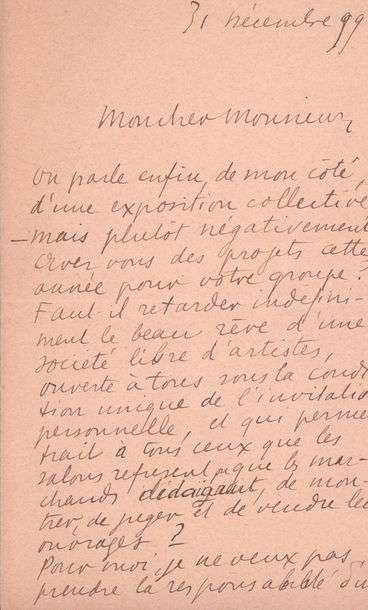 31 Décembre 99
Mon cher Monsieur,
On parle enfin, de mon côté,
d'une exposition collective
— mais plutôt négativement
Avez vous des projets cette
année pour votre groupe ?
Faut-il retarder indéfini-
ment le beau rêve d'une
société libre d'artistes,
ouverte à tous sous la condi
tion unique de l'invitatio
personnelle, et qui perme
trait à tous ceux que les
salons refusent, que les mar-
chands dédaignent, de mon-
trer, de juger et de vendre les
ouvrages ?
Pour moi, je ne veux pas
prendre la responsabilité d'u